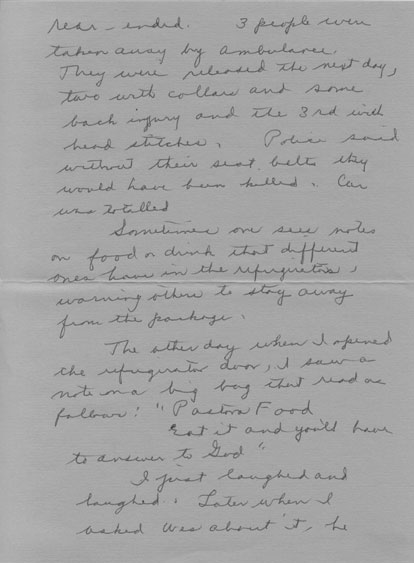 rear-ended. 3 people were
taken away by ambulance.
They were released the next day,
two with collars and some
back injury and the 3rd with
head stitches. Police said
without their seat belts they
would have been killed. Car
was totalled
Sometimes one sees notes
on food or drink that different
ones have in the refrigerator,
warning others to stay away
from the package.
The other day when I opened
the refrigerator door, I saw a
note on a big bag that read as
follows: "Pastors Food
Eat it and you'll have
to answer to God"
I just laughed and
laughed. Later when I
asked Wes about it, he